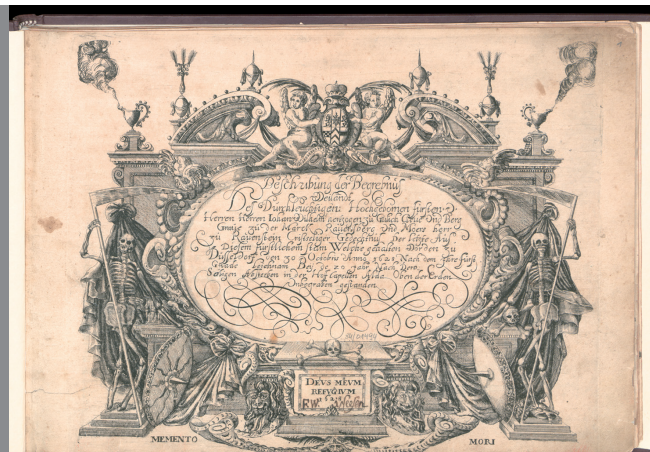 Beschreibung der Begrebnus
Weilandt
Des Durchleuchtigem Hochgebornen fursten
Herren Herren Johan Wilhelm Hertzogen zu Gulich Cleve Und Berg
Grave zu der Marck Ravensberg Und Moers Herr
zu Ravenstein Christseliger Der letste Auß
Diesem furstlichem stam Welche gehalten Worden zu
Düsseldorf den 30 Octobris Anno 1628 Nach dem Ihre furst
Leichnam Bis in das 20 Jahr Nach Dero
Seligen Absterben in der Alda Oben der Erden
Unbegraben gestanden
DEVS MEVM
REFVGIVM
MEMENTO
MORI